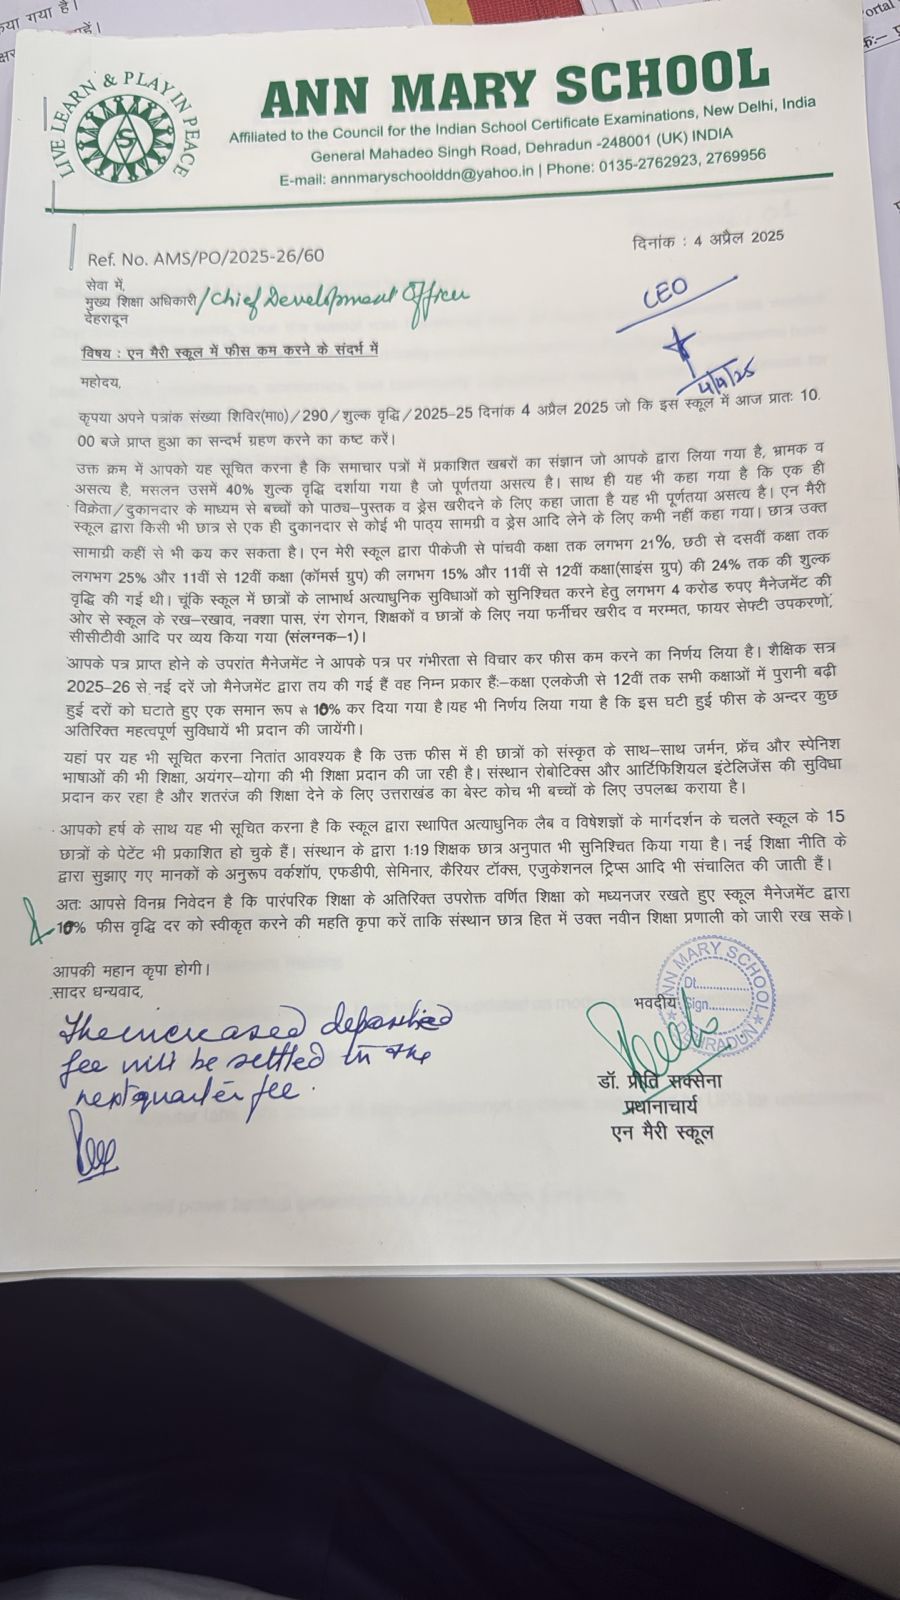 या गया है।
ortal
LIVE LEARN & PLAY IN PEACE
ANN MARY SCHOOL
Affiliated to the Council for the Indian School Certificate Examinations, New Delhi, India
General Mahadeo Singh Road, Dehradun -248001 (UK) INDIA
E-mail: annmaryschoolddn@yahoo.in | Phone: 0135-2762923, 2769956
Ref. No. AMS/PO/2025-26/60
दिनांक : 4 अप्रैल 2025
सेवा में,
मुख्य शिक्षा अधिकारी/Chief Development Officer
देहरादून
CEO
4/4/25
विषय : एन मैरी स्कूल में फीस कम करने के संदर्भ में
महोदय,
कृपया अपने पत्रांक संख्या शिविर(मा0)/290/शुल्क वृद्धि/2025-25 दिनांक 4 अप्रैल 2025 जो कि इस स्कूल में आज प्रातः 10.
00 बजे प्राप्त हुआ का सन्दर्भ ग्रहण करने का कष्ट करें।
उक्त क्रम में आपको यह सूचित करना है कि समाचार पत्रों में प्रकाशित खबरों का संज्ञान जो आपके द्वारा लिया गया है, भ्रामक व
असत्य है, मसलन उसमें 40% शुल्क वृद्धि दर्शाया गया है जो पूर्णतया असत्य है। साथ ही यह भी कहा गया है कि एक ही
विक्रेता/दुकानदार के माध्यम से बच्चों को पाठ्य-पुस्तक व ड्रेस खरीदने के लिए कहा जाता है यह भी पूर्णतया असत्य है। एन मैरी
स्कूल द्वारा किसी भी छात्र से एक ही दुकानदार से कोई भी पाठ्य सामग्री व ड्रेस आदि लेने के लिए कभी नहीं कहा गया। छात्र उक्त
सामाग्री कहीं से भी क्रय कर सकता है। एन मेरी स्कूल द्वारा पीकेजी से पांचवी कक्षा तक लगभग 21%, छठी से दसवीं कक्षा तक
लगभग 25% और 11वीं से 12वीं कक्षा (कॉमर्स ग्रुप) की लगभग 15% और 11वीं से 12वीं कक्षा(साइंस ग्रुप) की 24% तक की शुल्क
वृद्धि की गई थी। चूंकि स्कूल में छात्रों के लाभार्थ अत्याधुनिक सुविधाओं को सुनिश्चित करने हेतु लगभग 4 करोड रुपए मैनेजमेंट की
ओर से स्कूल के रख-रखाव, नक्शा पास, रंग रोगन, शिक्षकों व छात्रों के लिए नया फर्नीचर खरीद व मरम्मत, फायर सेफ्टी उपकरणों,
सीसीटीवी आदि पर व्यय किया गया (संलग्नक-1)।
आपके पत्र प्राप्त होने के उपरांत मैनेजमेंट ने आपके पत्र पर गंभीरता से विचार कर फीस कम करने का निर्णय लिया है। शैक्षिक सत्र
2025-26 से नई दरें जो मैनेजमेंट द्वारा तय की गई हैं वह निम्न प्रकार हैः-कक्षा एलकेजी से 12वीं तक सभी कक्षाओं में पुरानी बढ़ी
हुई दरों को घटाते हुए एक समान रूप से 10% कर दिया गया है।यह भी निर्णय लिया गया है कि इस घटी हुई फीस के अन्दर कुछ
अतिरिक्त महत्वपूर्ण सुविधायें भी प्रदान की जायेंगी।
यहां पर यह भी सूचित करना नितांत आवश्यक है कि उक्त फीस में ही छात्रों को संस्कृत के साथ-साथ जर्मन, फ्रेंच और स्पेनिश
भाषाओं की भी शिक्षा, अयंगर-योगा की भी शिक्षा प्रदान की जा रही है। संस्थान रोबोटिक्स और आर्टिफिशियल इंटेलिजेंस की सुविधा
प्रदान कर रहा है और शतरंज की शिक्षा देने के लिए उत्तराखंड का बेस्ट कोच भी बच्चों के लिए उपलब्ध कराया है।
आपको हर्ष के साथ यह भी सूचित करना है कि स्कूल द्वारा स्थापित अत्याधुनिक लैब व विषेशज्ञों के मार्गदर्शन के चलते स्कूल के 15
छात्रों के पेटेंट भी प्रकाशित हो चुके हैं। संस्थान के द्वारा 1:19 शिक्षक छात्र अनुपात भी सुनिश्चित किया गया है। नई शिक्षा नीति के
द्वारा सुझाए गए मानकों के अनुरूप वर्कशॉप, एफडीपी, सेमिनार, कैरियर टॉक्स, एजुकेशनल ट्रिप्स आदि भी संचालित की जाती हैं।
अतः आपसे विनम्र निवेदन है कि पारंपरिक शिक्षा के अतिरिक्त उपरोक्त वर्णित शिक्षा को मध्यनजर रखते हुए स्कूल मैनेजमेंट द्वारा
10% फीस वृद्धि दर को स्वीकृत करने की महति कृपा करें ताकि संस्थान छात्र हित में उक्त नवीन शिक्षा प्रणाली को जारी रख सके।
आपकी महान कृपा होगी।
सादर धन्यवाद,
The increased deposited
fee will be settled in the
next quarter fee.
ANN MARY SCHOOL
Dt.
Sign.
DEHRADUN
भवदीय
डॉ. प्रीति सक्सेना
प्रधानाचार्य
एन मैरी स्कूल